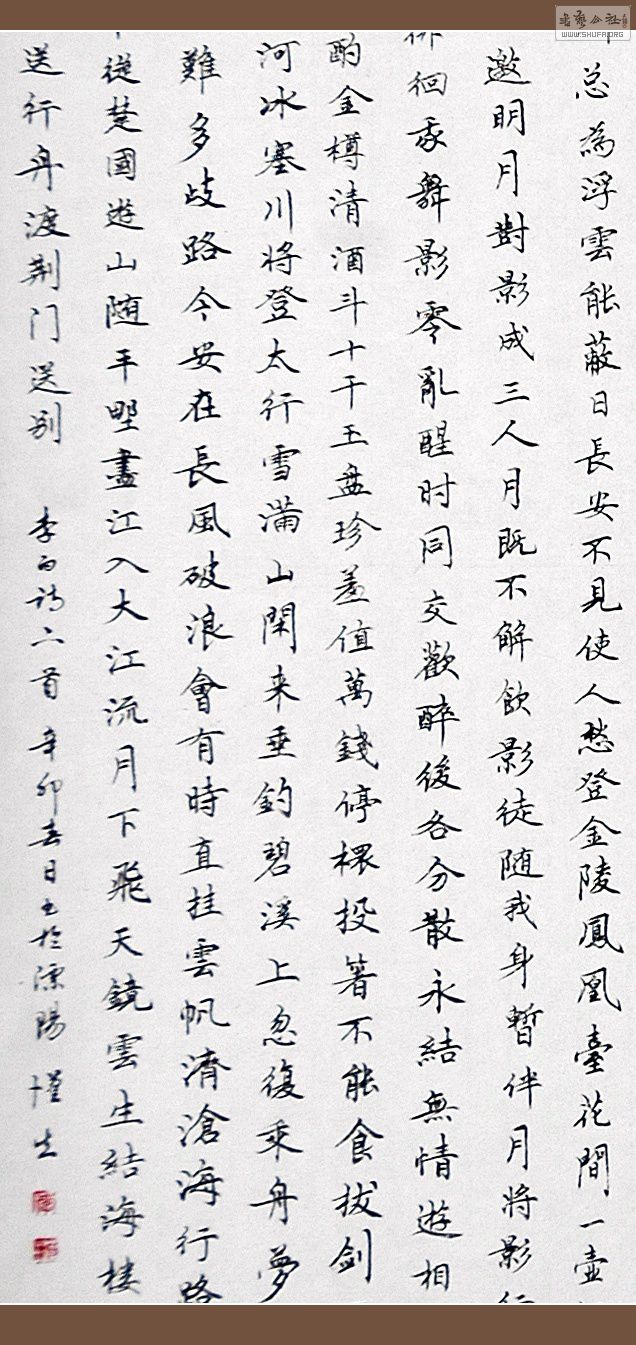 总為浮雲能蔽日長安不見使人愁登金陵鳳凰臺花間一壺
邀明月對影成三人月既不解飲影徒随我身暫伴月將影行
徘徊我舞影零亂醒时同交歡醉後各分散永結無情遊相
酌金樽清酒斗十千玉盘珍羞值萬錢停杯投箸不能食拔剑
河冰塞川将登太行雪满山閑来垂釣碧溪上忽復乘舟夢
難多歧路今安在長風破浪會有時直挂雲帆濟滄海行路
從楚國遊山随平野盡江入大江流月下飛天鏡雲生結海楼
送行舟渡荆门送别 李白诗六首 辛卯春日书於溧陽
WWW.SHUFA.ORG